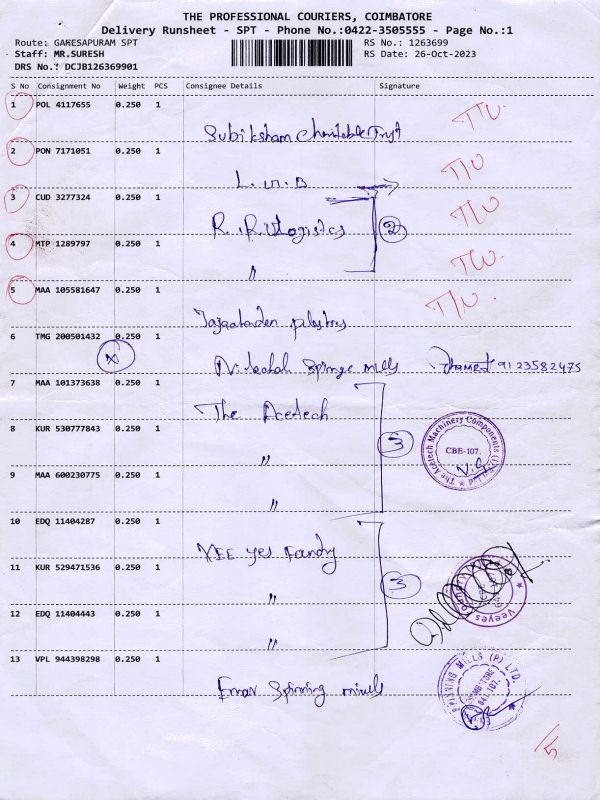 THE PROFESSIONAL COURIERS, COIMBATORE
Delivery Runsheet - SPT - Phone No.:0422-3505555 - Page No.:1
Route: GANESAPURAM SPT RS No.: 1263699
Staff: MR.SURESH RS Date: 26-Oct-2023
DRS No.: DCJB126369901
S No Consignment No Weight PCS Consignee Details Signature
1 POL 4117655 0.250 1
Subiksham Charitable Trust
2 PON 7171051 0.250 1
3 CUD 3277324 0.250 1
R.R Logistics 2
4 MTP 1289797 0.250 1
"
5 MAA 105581647 0.250 1
6 TMG 200501432 0.250 1
mills 9123582475
7 MAA 101373638 0.250 1
The Acetech
8 KUR 530777843 0.250 1
" 3
The Acetech Machinery Components (I) Pvt Ltd
CBE-107.
9 MAA 600230775 0.250 1
"
10 EDQ 11404287 0.250 1
VEE yes
11 KUR 529471536 0.250 1
" 3
Veeyes
12 EDQ 11404443 0.250 1
"
13 VPL 944398298 0.250 1
Emar Spinning
SPINNING MILLS (P) LTD.
COIMBATORE
641 107.
5